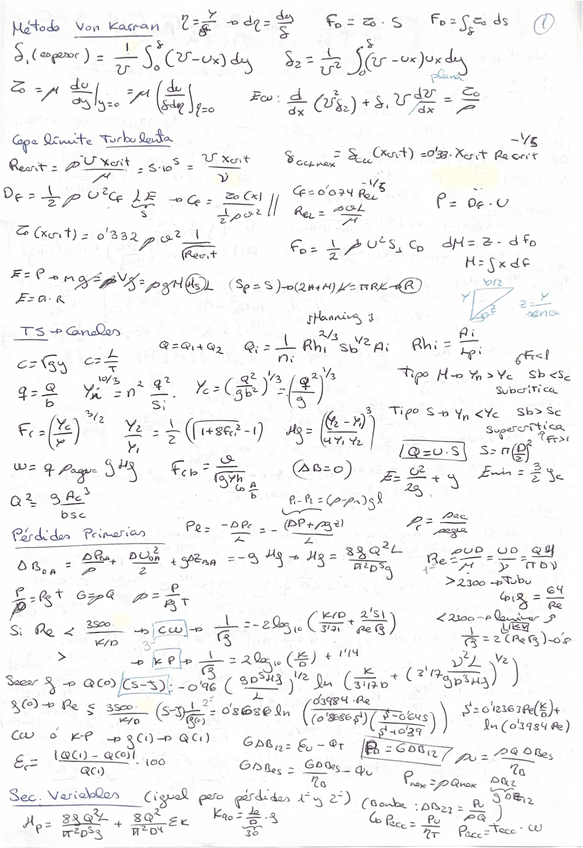 Método Von Karman η = y/δ → dη = dy/δ F_D = τ_0 · S F_D = ∫_S τ_0 ds 1
δ_1 (espesor) = 1/U ∫_0^δ (U - ux) dy δ_2 = 1/U² ∫_0^δ (U - ux) ux dy
τ_0 = μ du/dy|_{y=0} = μ (du/δdη)|_{η=0} Ecu: d/dx (U²δ_2) + δ_1 U dU/dx = τ_0/ρ
Capa límite Turbulenta
Recrit = ρ U Xcrit/μ = 5·10^5 = U Xcrit/ν δ_CLLmax = δ_CLL (Xcrit) = 0'33 · Xcrit Recrit^{-1/5}
D_F = 1/2 ρ U² C_F LB → C_F = τ_0(x) / (1/2 ρ U²) // C_F = 0'074 Re_L^{-1/5} Re_L = ρUL/μ P = D_F · U
τ_0 (Xcrit) = 0'332 ρ U² 1/√Recrit F_D = 1/2 ρ U² S_⊥ C_D dM = z · dF_D
M = ∫ x dF
E = P → mg = ρVg = ρgM(H_s)L (S_p = S) → (2H+M)K = πRK → R b/2
E = a · R Y z = Y/senα
TS → Canales
Manning
c = √gy c = L/T Q = Q_1 + Q_2 Q_i = 1/n_i Rh_i^{2/3} Sb^{1/2} A_i Rh_i = A_i/Lp_i
q = Q/b Y_n^{10/3} = n² q²/S_i Y_c = (Q²/gb²)^{1/3} = (q²/g)^{1/3} Tipo M → Yn > Yc Sb < Sc Fr<1
Subcrítica
F_r = (Yc/Y)^{3/2} Y_2/Y_1 = 1/2 (√(1+8Fr_1²) - 1) Hg = (Y_2 - Y_1)³/(4Y_1Y_2) Tipo S → Yn < Yc Sb > Sc
Supercrítica Fr>1
Q = U · S S = π(D/2)²
ω = q ρagua g Hg Frb = U/√(gYh) → A/b (ΔB = 0) E = U²/2g + y Emin = 3/2 yc
Q² = gAc³/bsc P_1 - P_2 = (ρ - ρ_r)gl
Pérdidas Primarias
Pe = -ΔPr/L = -(ΔP + ρgz)/L
ΔB_BA = ΔP_BA/ρ + ΔU²_BA/2 + gΔZ_BA = -g Hg → Hg = 8fQ²L/π²D⁵g Re = ρUD/μ = UD/ν = 4Q/πDν
> 2300 → Turbu
P/ρ = RgT G = ρQ ρ = P/RgT f = 64/Re
< 2300 → laminar
Si Re < 3500/(K/D) → CW → 1/√f = -2 log10 (K/D/3'71 + 2'51/Re√f) 1/√f = 2 (Re√f) - 0'8
> → KP → 1/√f = 2 log10 (K/D) + 1'14
Sacar f → Q(0) (S-J): -0'96 (gD⁵Hg/L)^{1/2} ln (K/3'17D + (3'17 ν²L/gD³Hg)^{1/2})
f(0) → Re ≤ 3500/(K/D) (S-J) 1/√f(0) = 0'8686 ln (0'3984 Re/(0'8686 S')^{(S'-0'645)/(S'+0'39)}) S' = 0'12363 Re(K/D) + ln (0'3984 Re)
CW ó KP → f(1) → Q(1) GΔB_12 = Eu - QT P_a = GΔB_12
Er = |Q(1) - Q(0)|/Q(1) · 100 GΔBes = GΔBes/η_B - Qu Pu = ρQ ΔBes/η_B
Pmax = ρQmax
Sec. Variables (igual pero pérdidas 1ª y 2ª) (Bomba: ΔB_23 = Pu/ρQ)
Hp = 8fQ²L/π²D⁵g + 8Q²/π²D⁴ Σk K90 = Le/D · f 30 → Pacc = Pu/η_T Pacc = τacc · ω